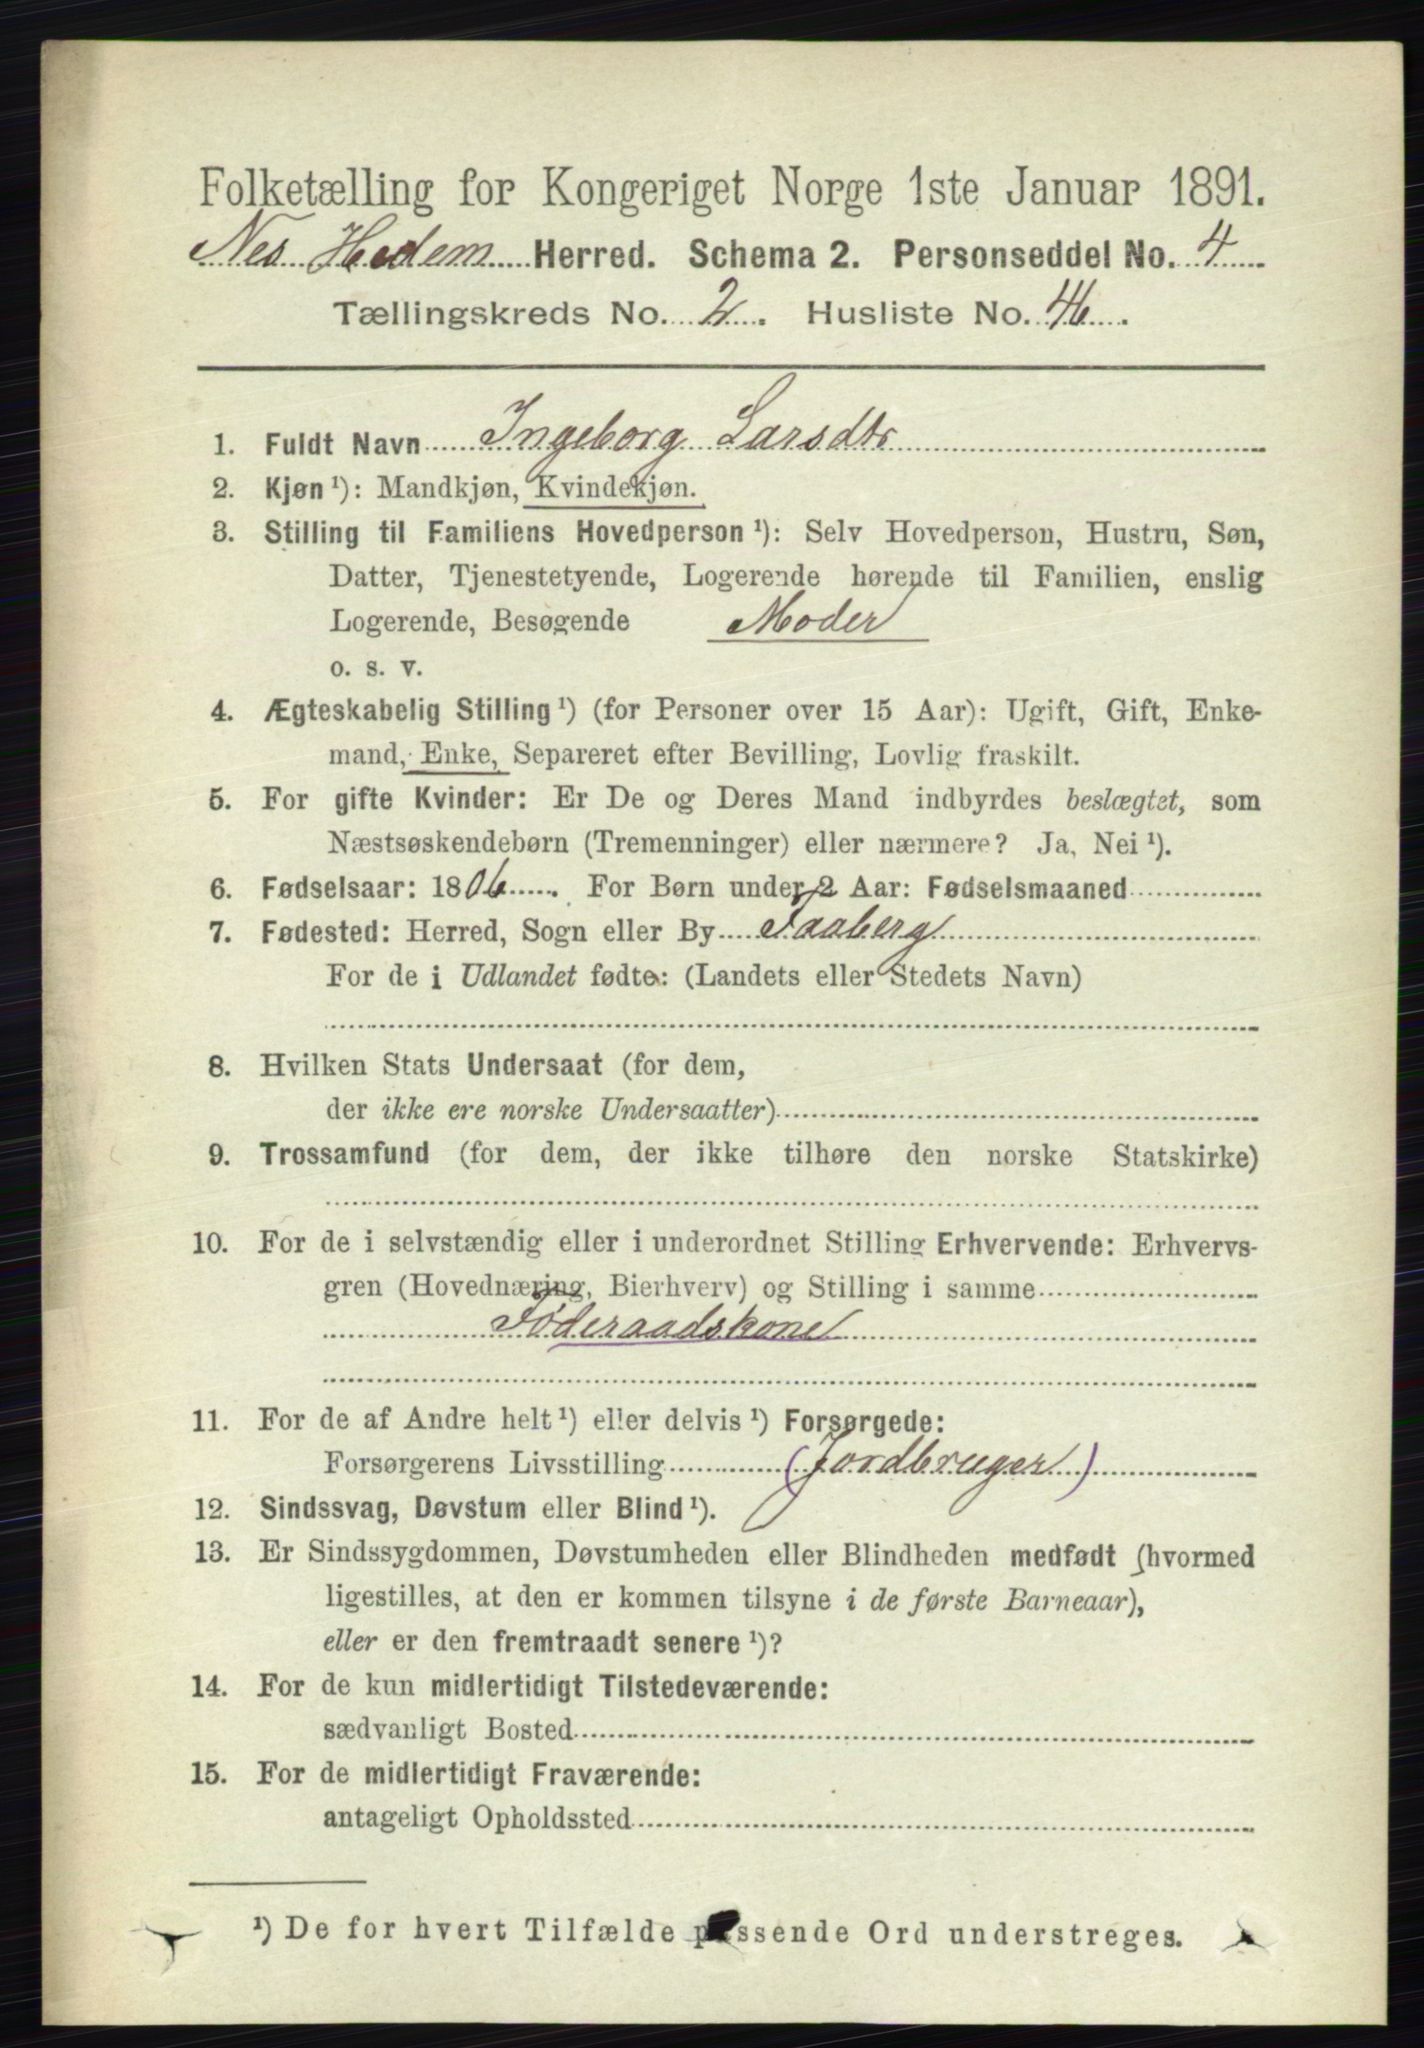 Folketælling for Kongeriget Norge 1ste Januar 1891.
Nes Hedem Herred. Schema 2. Personseddel No. 4
Tællingskreds No. 2. Husliste No. 46.
1. Fuldt Navn Ingeborg Larsdtr
2. Kjøn ¹): Mandkjøn, Kvindekjøn.
3. Stilling til Familiens Hovedperson ¹): Selv Hovedperson, Hustru, Søn,
Datter, Tjenestetyende, Logerende hørende til Familien, enslig
Logerende, Besøgende Moder
o. s. v.
4. Ægteskabelig Stilling ¹) (for Personer over 15 Aar): Ugift, Gift, Enke-
mand, Enke, Separeret efter Bevilling, Lovlig fraskilt.
5. For gifte Kvinder: Er De og Deres Mand indbyrdes beslægtet, som
Næstsøskendebørn (Tremenninger) eller nærmere? Ja, Nei ¹).
6. Fødselsaar: 1806. For Børn under 2 Aar: Fødselsmaaned
7. Fødested: Herred, Sogn eller By Faaberg
For de i Udlandet fødte: (Landets eller Stedets Navn)
8. Hvilken Stats Undersaat (for dem,
der ikke ere norske Undersaatter)
9. Trossamfund (for dem, der ikke tilhøre den norske Statskirke)
10. For de i selvstændig eller i underordnet Stilling Erhvervende: Erhvervs-
gren (Hovednæring, Bierhverv) og Stilling i samme
Føderaadskone
11. For de af Andre helt ¹) eller delvis ¹) Forsørgede:
Forsørgerens Livsstilling (Jordbruger)
12. Sindssvag, Døvstum eller Blind ¹).
13. Er Sindssygdommen, Døvstumheden eller Blindheden medfødt (hvormed
ligestilles, at den er kommen tilsyne i de første Barneaar),
eller er den fremtraadt senere ¹)?
14. For de kun midlertidigt Tilstedeværende:
sædvanligt Bosted
15. For de midlertidigt Fraværende:
antageligt Opholdssted
¹) De for hvert Tilfælde passende Ord understreges.